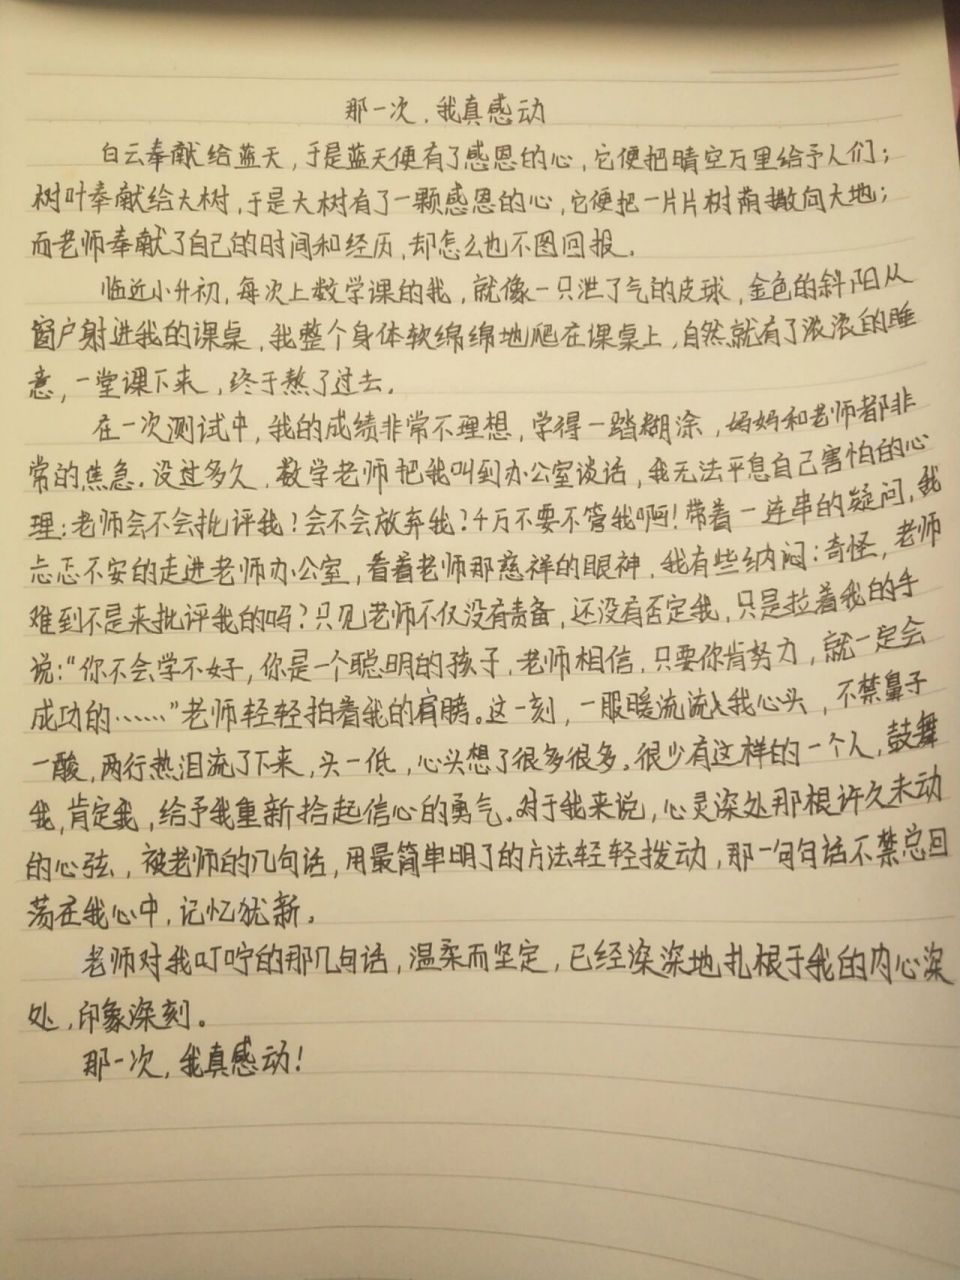 那一次，我真感动
白云奉献给蓝天，于是蓝天便有了感恩的心，它便把晴空万里给予人们；
树叶奉献给大树，于是大树有了一颗感恩的心，它便把一片片树荫撒向大地；
而老师奉献了自己的时间和经历，却怎么也不图回报。
临近小升初，每次上数学课的我，就像一只泄了气的皮球，金色的斜阳从
窗户射进我的课桌，我整个身体软绵绵地爬在课桌上，自然就有了浓浓的睡
意，一堂课下来，终于熬了过去。
在一次测试中，我的成绩非常不理想，学得一踏糊涂，妈妈和老师都非
常的焦急。没过多久，数学老师把我叫到办公室谈话，我无法平息自己害怕的心
理：老师会不会批评我！会不会放弃我？千万不要不管我啊！带着一连串的疑问，我
忐忑不安的走进老师办公室，看着老师那慈祥的眼神，我有些纳闷：奇怪，老师
难到不是来批评我的吗？只见老师不仅没有责备，还没有否定我，只是拉着我的手
说：“你不会学不好，你是一个聪明的孩子，老师相信，只要你肯努力，就一定会
成功的……”老师轻轻拍着我的肩膀。这一刻，一股暖流流入我心头，不禁鼻子
一酸，两行热泪流了下来，头一低，心头想了很多很多。很少有这样的一个人，鼓舞
我，肯定我，给予我重新拾起信心的勇气。对于我来说，心灵深处那根许久未动
的心弦，被老师的几句话，用最简单明了的方法轻轻拨动，那一句句话不禁总回
荡在我心中，记忆犹新。
老师对我叮咛的那几句话，温柔而坚定，已经深深地扎根于我的内心深
处，印象深刻。
那一次，我真感动！